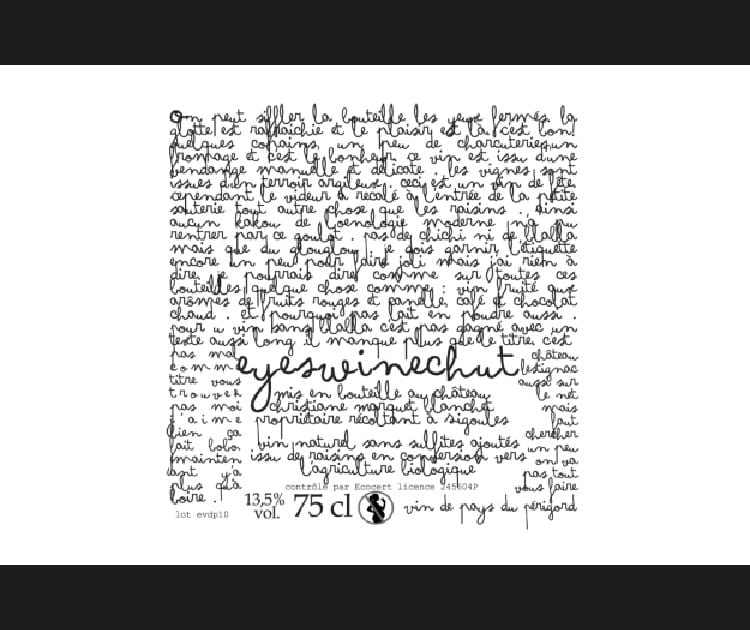 On peut siffler la bouteille les yeux fermés la
glotte est rafraichie et le plaisir est là c'est bon!
quelques copains, un peu de charcuterie, un
fromage et c'est le bonheur ce vin est issu d'une
vendange manuelle et délicate . les vignes sont
issues d'un terroir argileux, ceci est un vin de fête
cependant le videur a recalé à l'entrée de la petite
sauterie tout autre chose que les raisins .. ainsi
aucun kakou de l'oenologie moderne n'a pu
rentrer par ce goulot . pas de chichi ni de blabla
mais que du glouglou . je dois garnir l'étiquette
encore un peu pour faire joli mais j'ai rien à
dire, je pourrais dire comme sur toutes ces
bouteilles quelque chose comme : vin fruité aux
arômes de fruits rouges et canelle, café et chocolat
chaud . et pourquoi pas lait en poudre aussi .
pour u vin sans blabla c'est pas gagné avec un
texte aussi long il manque plus que le titre, c'est
pas mal
comme
titre vous
trouvez
pas moi
j'aime
bien ça
fait bobo
mainten
ant y'a
plus qu'à
boire .
lot evdp10
eyeswinechut
mis en bouteille au château
christiane marquet blanchet
propriétaire récoltant à sigoules
vin naturel sans sulfites ajoutés
issu de raisins en conversion vers
l'agriculture biologique
contrôlé par Ecocert licence 245604P
13,5%
vol.
75 cl
château
lestignac
aussi sur
le net
mais
faut
chercher
un peu
on va
pas tout
vous faire
vin de pays du périgord